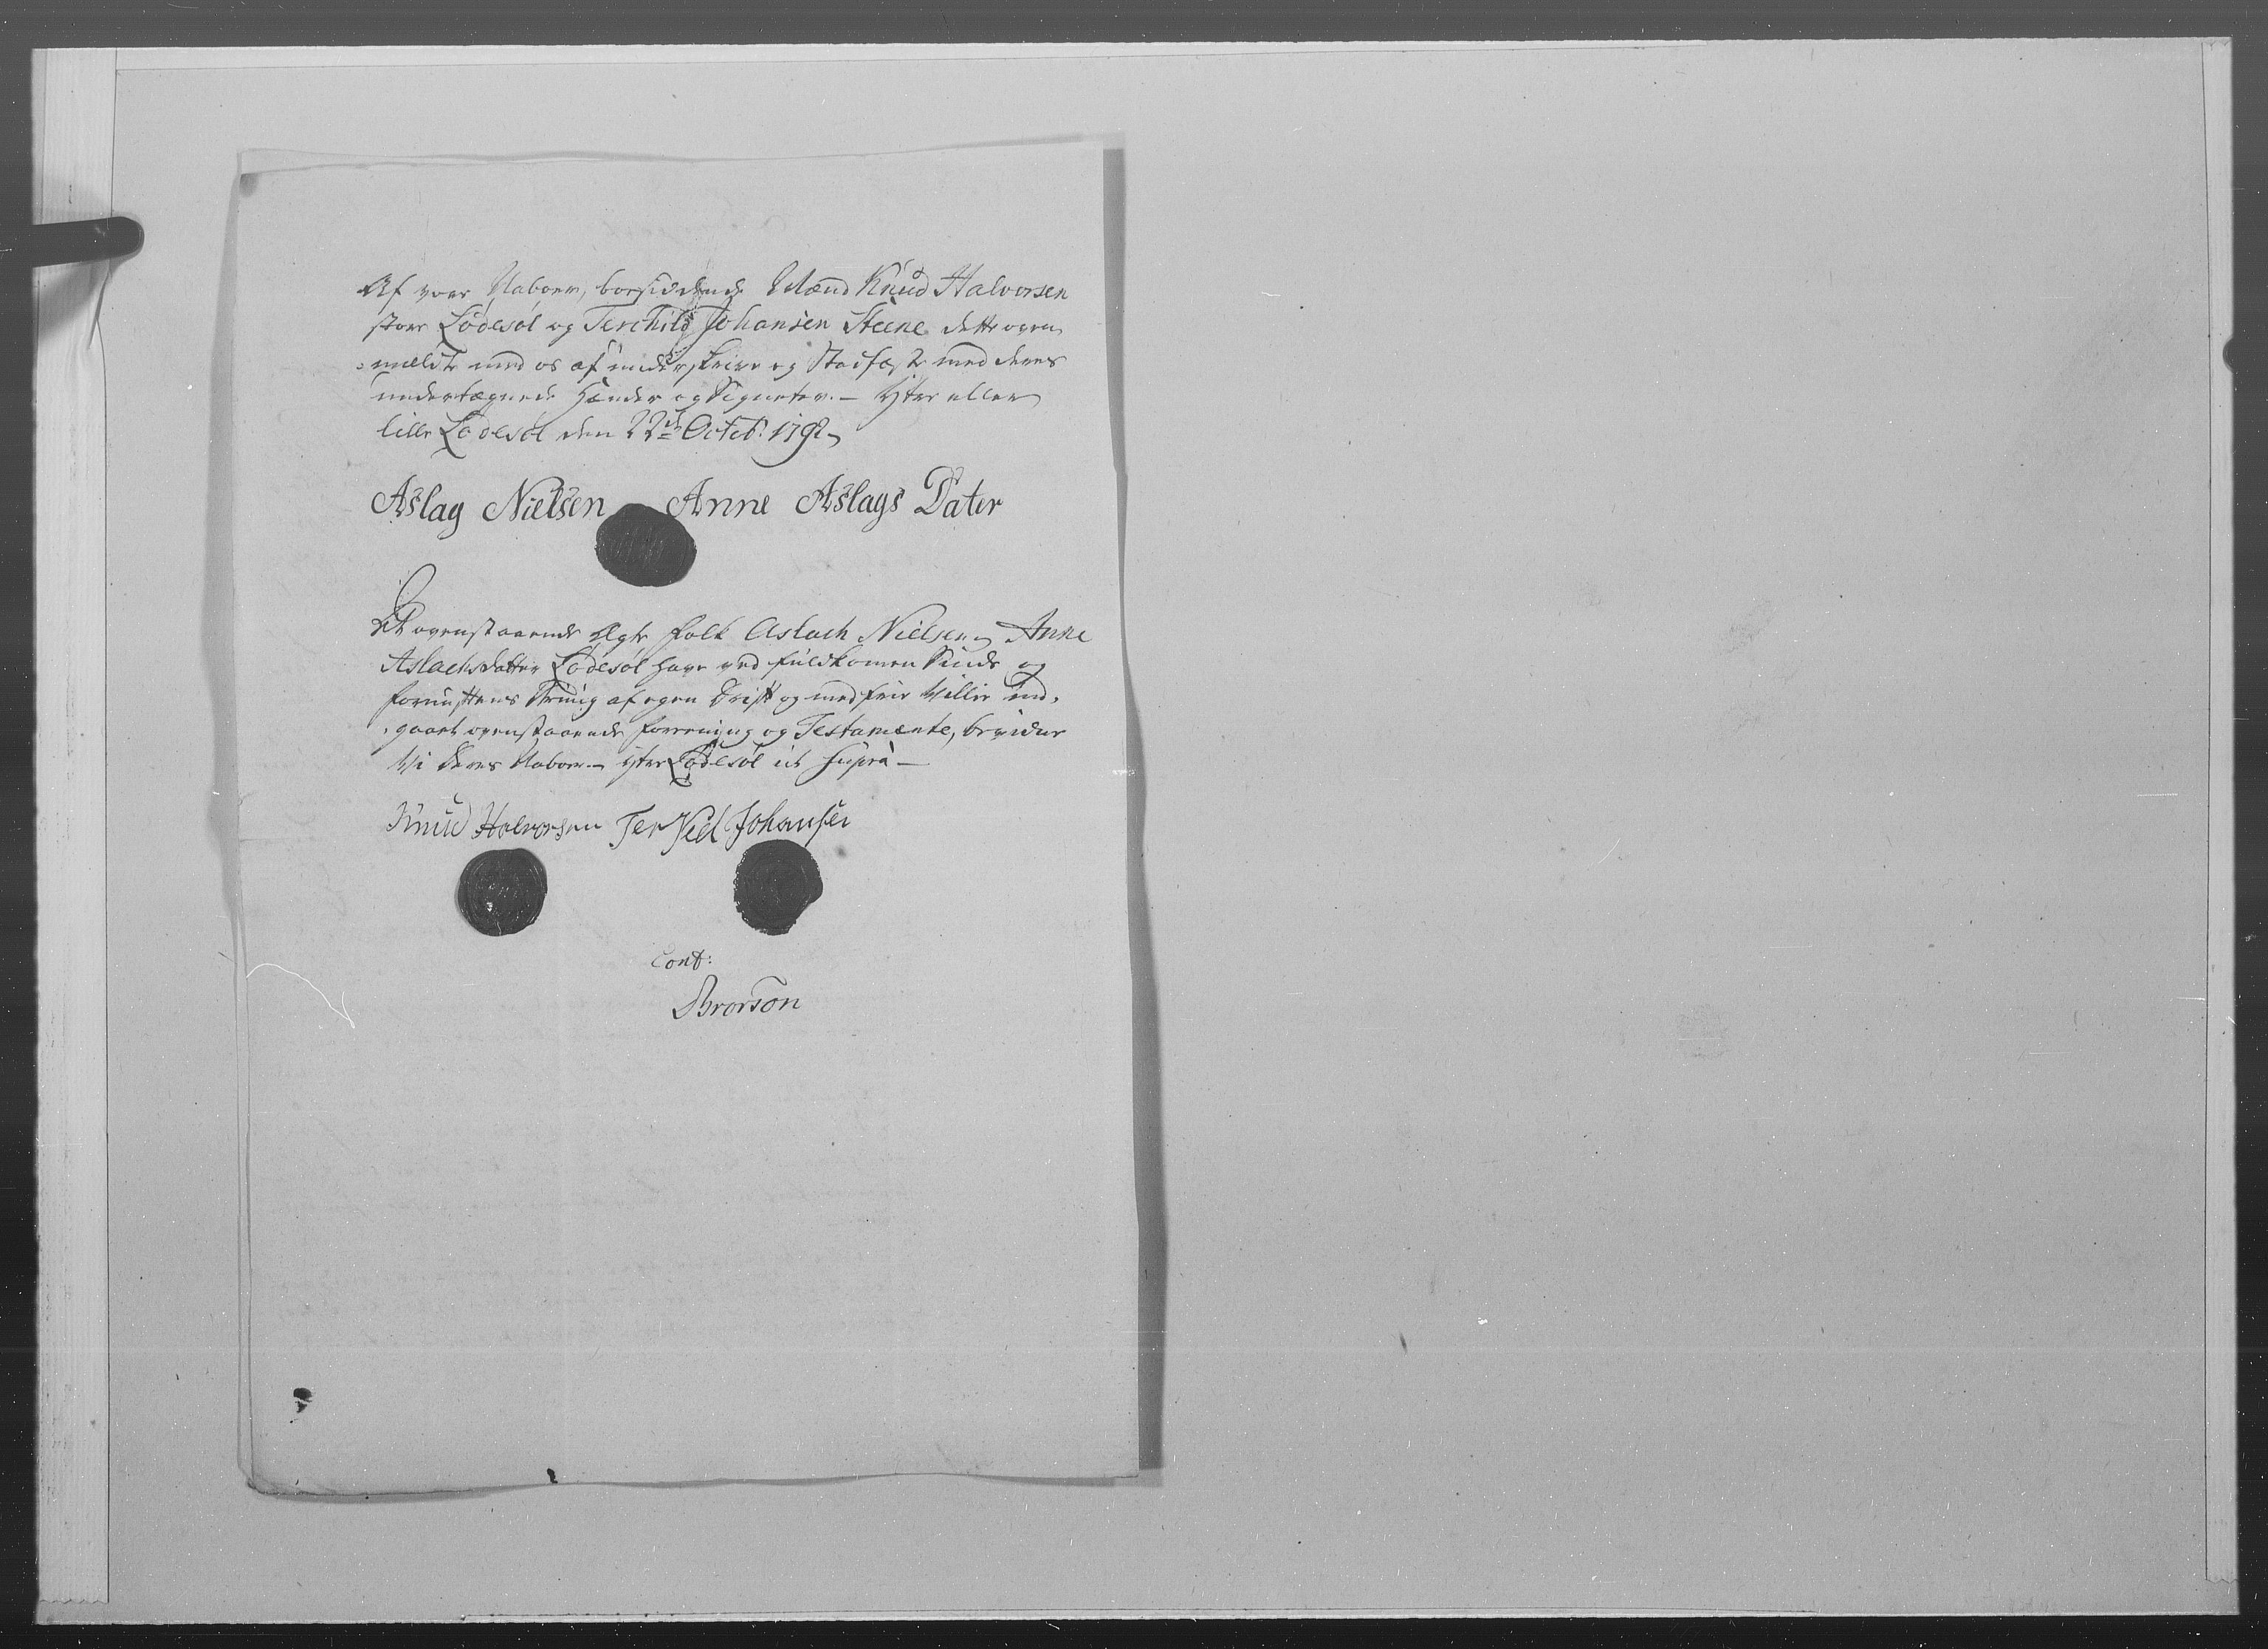 Af vore Naboer, borsidende Mænd Knud Halvorsen
store Lødesøl og Terchild Johansen Steene dette oven,
-meldte med os at underskrive og Stadfæste med deres
undertegnede Hænder og Signeter. - Ytter eller
lille Lødesøl den 22de Octob: 1792,
Aslag Nielsen Anne Aslags Dater
At ovenstaaende Egte Folk Aslach Nielsen, Anne
Aslachsdatter Lødesøl have ved fuldkomen Sinds og
fornuftens brug af egen Drift og med frie Villie ind-
-gaaet ovenstaaende forrening og Testamente, bevidner
Vi deres Naboer. - Ytter Lødesøl ut supra -
Knud Halvorsen Terkiel Johansen
Cont:
Brorson